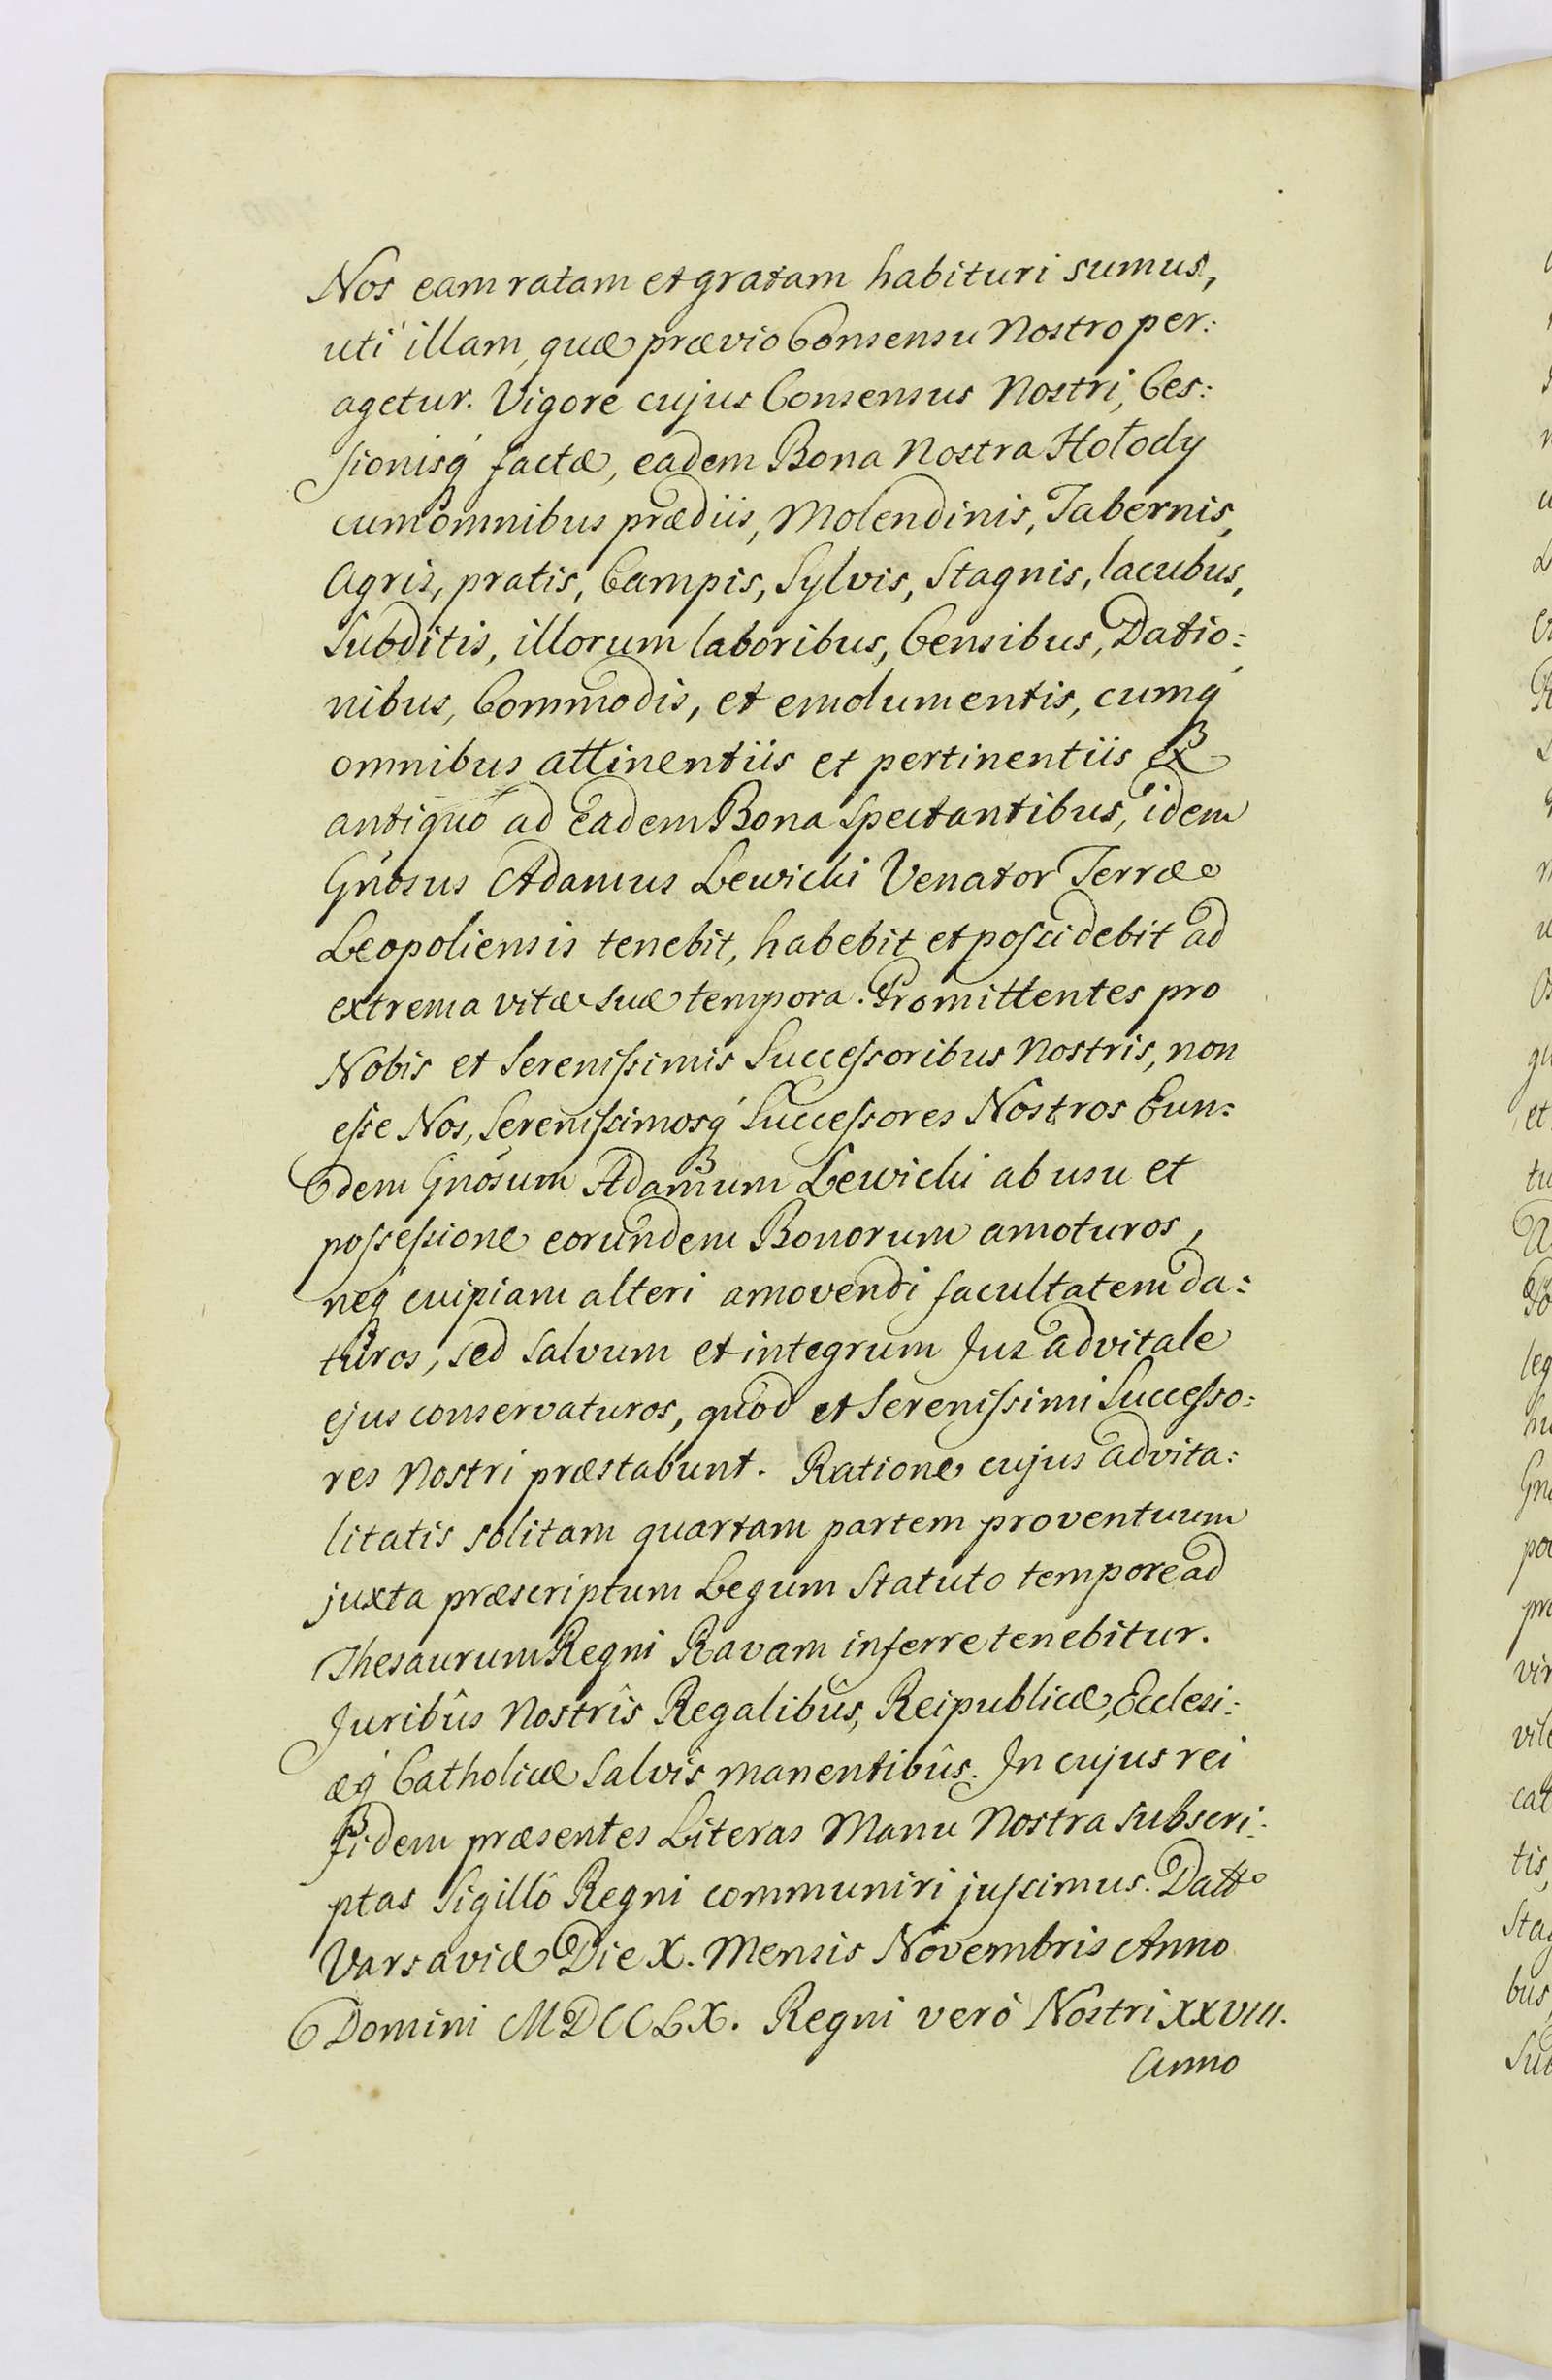 Nos eam ratam et gratam habituri sumus,
uti illam, quæ prævio Consensu Nostro per:
agetur. Vigore cujus Consensus Nostri, Ces:
sionisq́ factæ, eadem Bona Nostra Hołody
cum omnibus prædiis, Molendinis, Tabernis,
Agris, pratis, Campis, Sylvis, Stagnis, lacubus,
Subditis, illorum laboribus, Censibus, Datio:
nibus, Commodis, et emolumentis, cumq́
omnibus attinentiis et pertinentiis ex
antiquô ad Eadem Bona Spectantibus, idem
Gnosus Adamus Lewicki Venator Terræ
Leopoliensis tenebit, habebit et possidebit ad
extrema vitæ suæ tempora. Promittentes pro
Nobis et Serenissimis Successoribus Nostris, non
esse Nos, Serenissimosq́ Successores Nostros Eun:
dem Gnosum Adamum Lewicki ab usu et
possessione eorundem Bonorum amoturos,
neq́ cuipiam alteri amovendi facultatem da:
turos, sed salvum et integrum Jus advitale
ejus conservaturos, quod et Serenissimi Successo:
res Nostri præstabunt. Ratione cujus advita:
litatis solitam quartam partem proventuum
juxta præscriptum Legum statuto tempore ad
Thesaurum Regni Ravam inferre tenebitur.
Juribûs Nostrîs Regalibûs, Reipublicæ, Ecclesi:
æq́ Catholicæ salvîs manentibûs. In cujus rei
fidem præsentes Literas Manu Nostra subscri:
ptas Sigillô Regni communiri jussimus. Datt⁰
Varsaviæ Die X. Mensis Novembris Anno
Domini MDCCLX. Regni verò Nostri XXVIII.
Anno